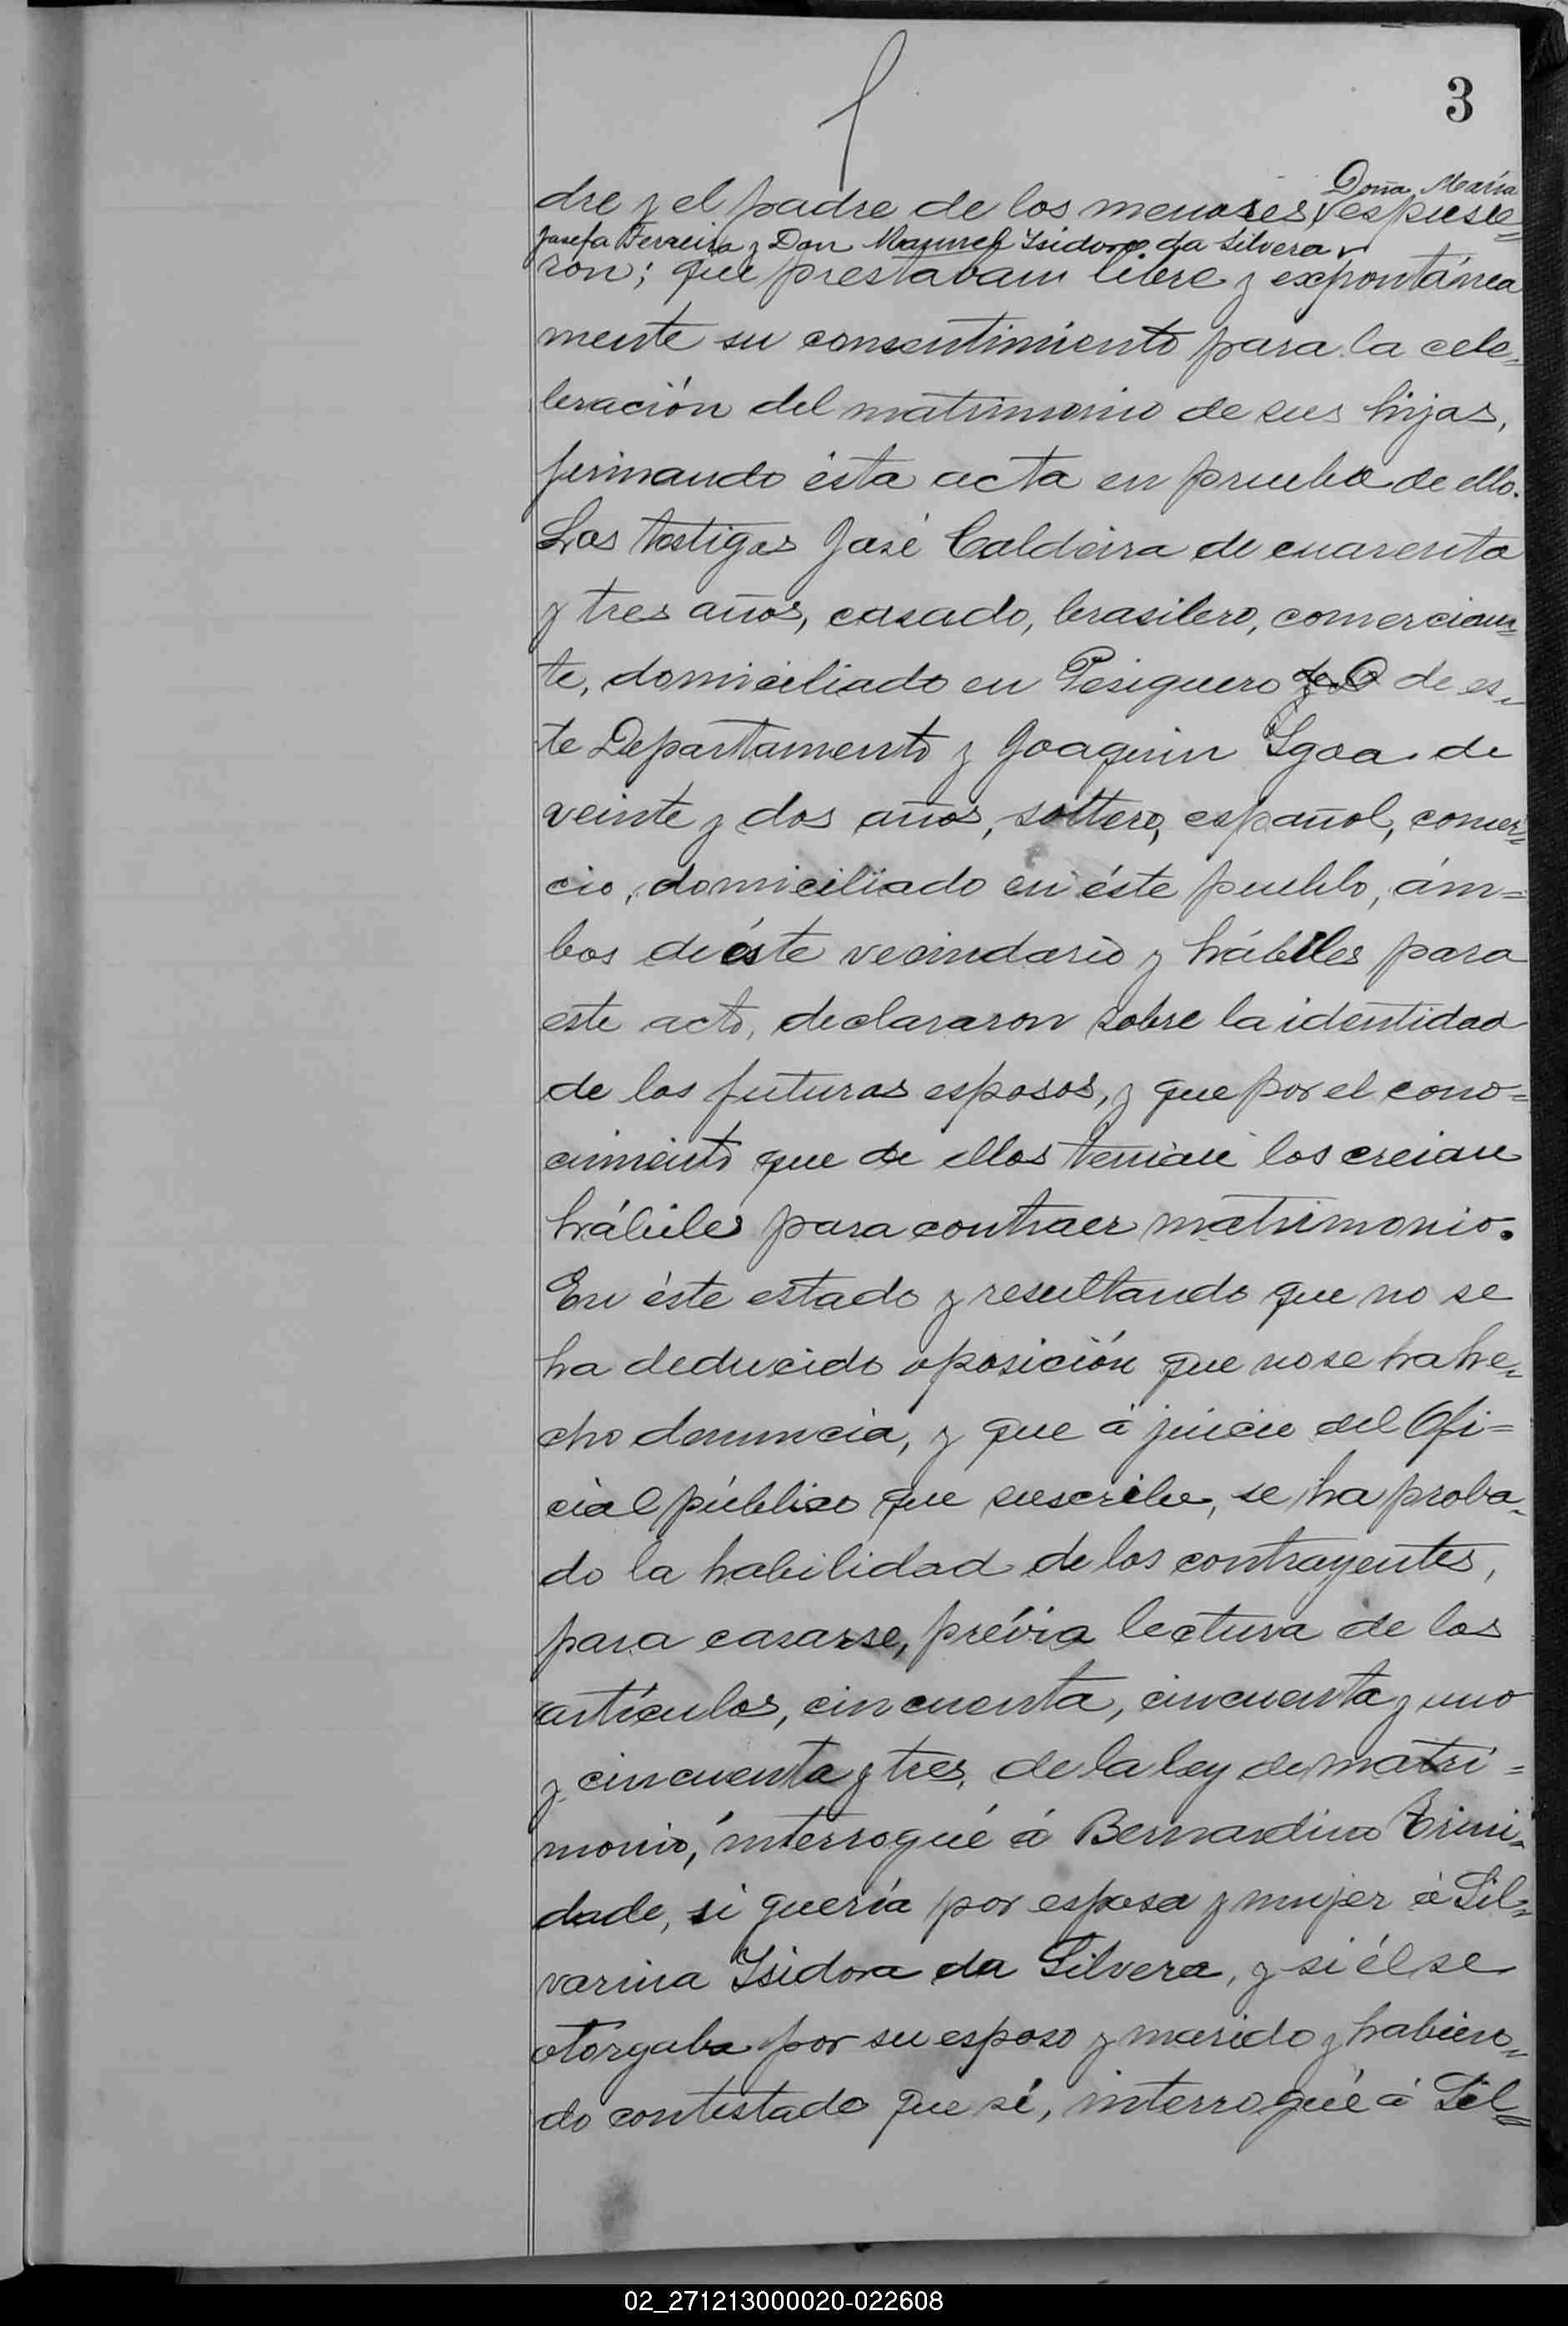 3
Doña María
dre y el padre de los menores, espusie=
Josefa Ferreira y Don Manuel Isidoro da Silvera
ron; que prestaban libre y expontánea
mente su consentimiento para la cele=
bración del matrimonio de sus hijos,
firmando ésta acta en prueba de ello.
Los testigos José Caldeira de cuarenta
y tres años, casado, brasilero, comercian=
te, domiciliado en Pesiguero de es=
te Departamento y Joaquin Ygoa de
veinte y dos años, soltero, español, comer=
cio, domiciliado en éste pueblo, ám=
bos de éste vecindario y hábiles para
este acto, declararon sobre la identidad
de los futuros esposos, y que por el cono=
cimiento que de ellos tenian los creian
hábiles para contraer matrimonio.
En éste estado y resultando que no se
ha deducido oposición que no se ha he=
cho denuncia, y que á juicio del Ofi=
cial público que suscribe, se ha proba=
do la habilidad de los contrayentes,
para casarse, prévia lectura de los
artículos, cincuenta, cincuenta y uno
y cincuenta y tres, de la ley de matri=
monio, interrogué á Bernardino Trini=
dade, si quería por esposa y mujer á Sil=
varina Isidora da Silvera, y si él se
otorgaba por su esposo y marido y habien=
do contestado que sí, interrogué á Sil=
02_271213000020-022608